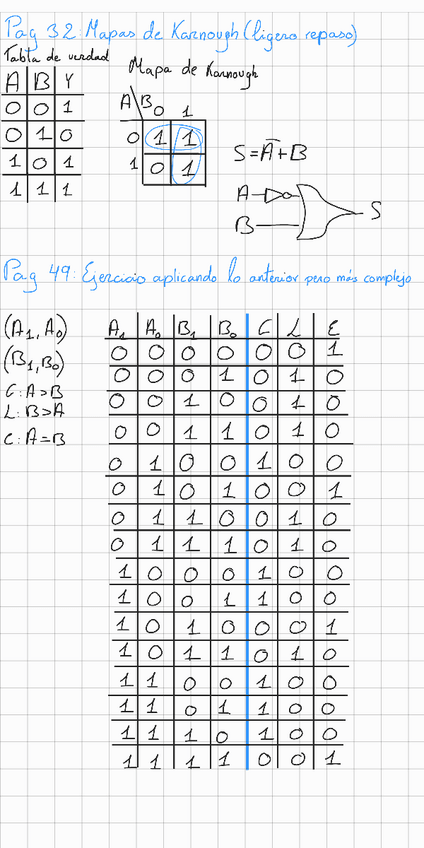 Pag 32 Mapas de Karnough (ligero repaso)
Tabla de verdad
Mapa de Karnough
A B Y
0 0 1
0 1 0
1 0 1
1 1 1
A\B 0 1
0 1 1
1 0 1
S=A̅+B
A
B
S
Pag 49: Ejercicio aplicando lo anterior pero más complejo
(A₁, A₀)
(B₁, B₀)
G: A>B
L: B>A
C: A=B
A₁ A₀ B₁ B₀ G L E
0 0 0 0 0 0 1
0 0 0 1 0 1 0
0 0 1 0 0 1 0
0 0 1 1 0 1 0
0 1 0 0 1 0 0
0 1 0 1 0 0 1
0 1 1 0 0 1 0
0 1 1 1 0 1 0
1 0 0 0 1 0 0
1 0 0 1 1 0 0
1 0 1 0 0 0 1
1 0 1 1 0 1 0
1 1 0 0 1 0 0
1 1 0 1 1 0 0
1 1 1 0 1 0 0
1 1 1 1 0 0 1